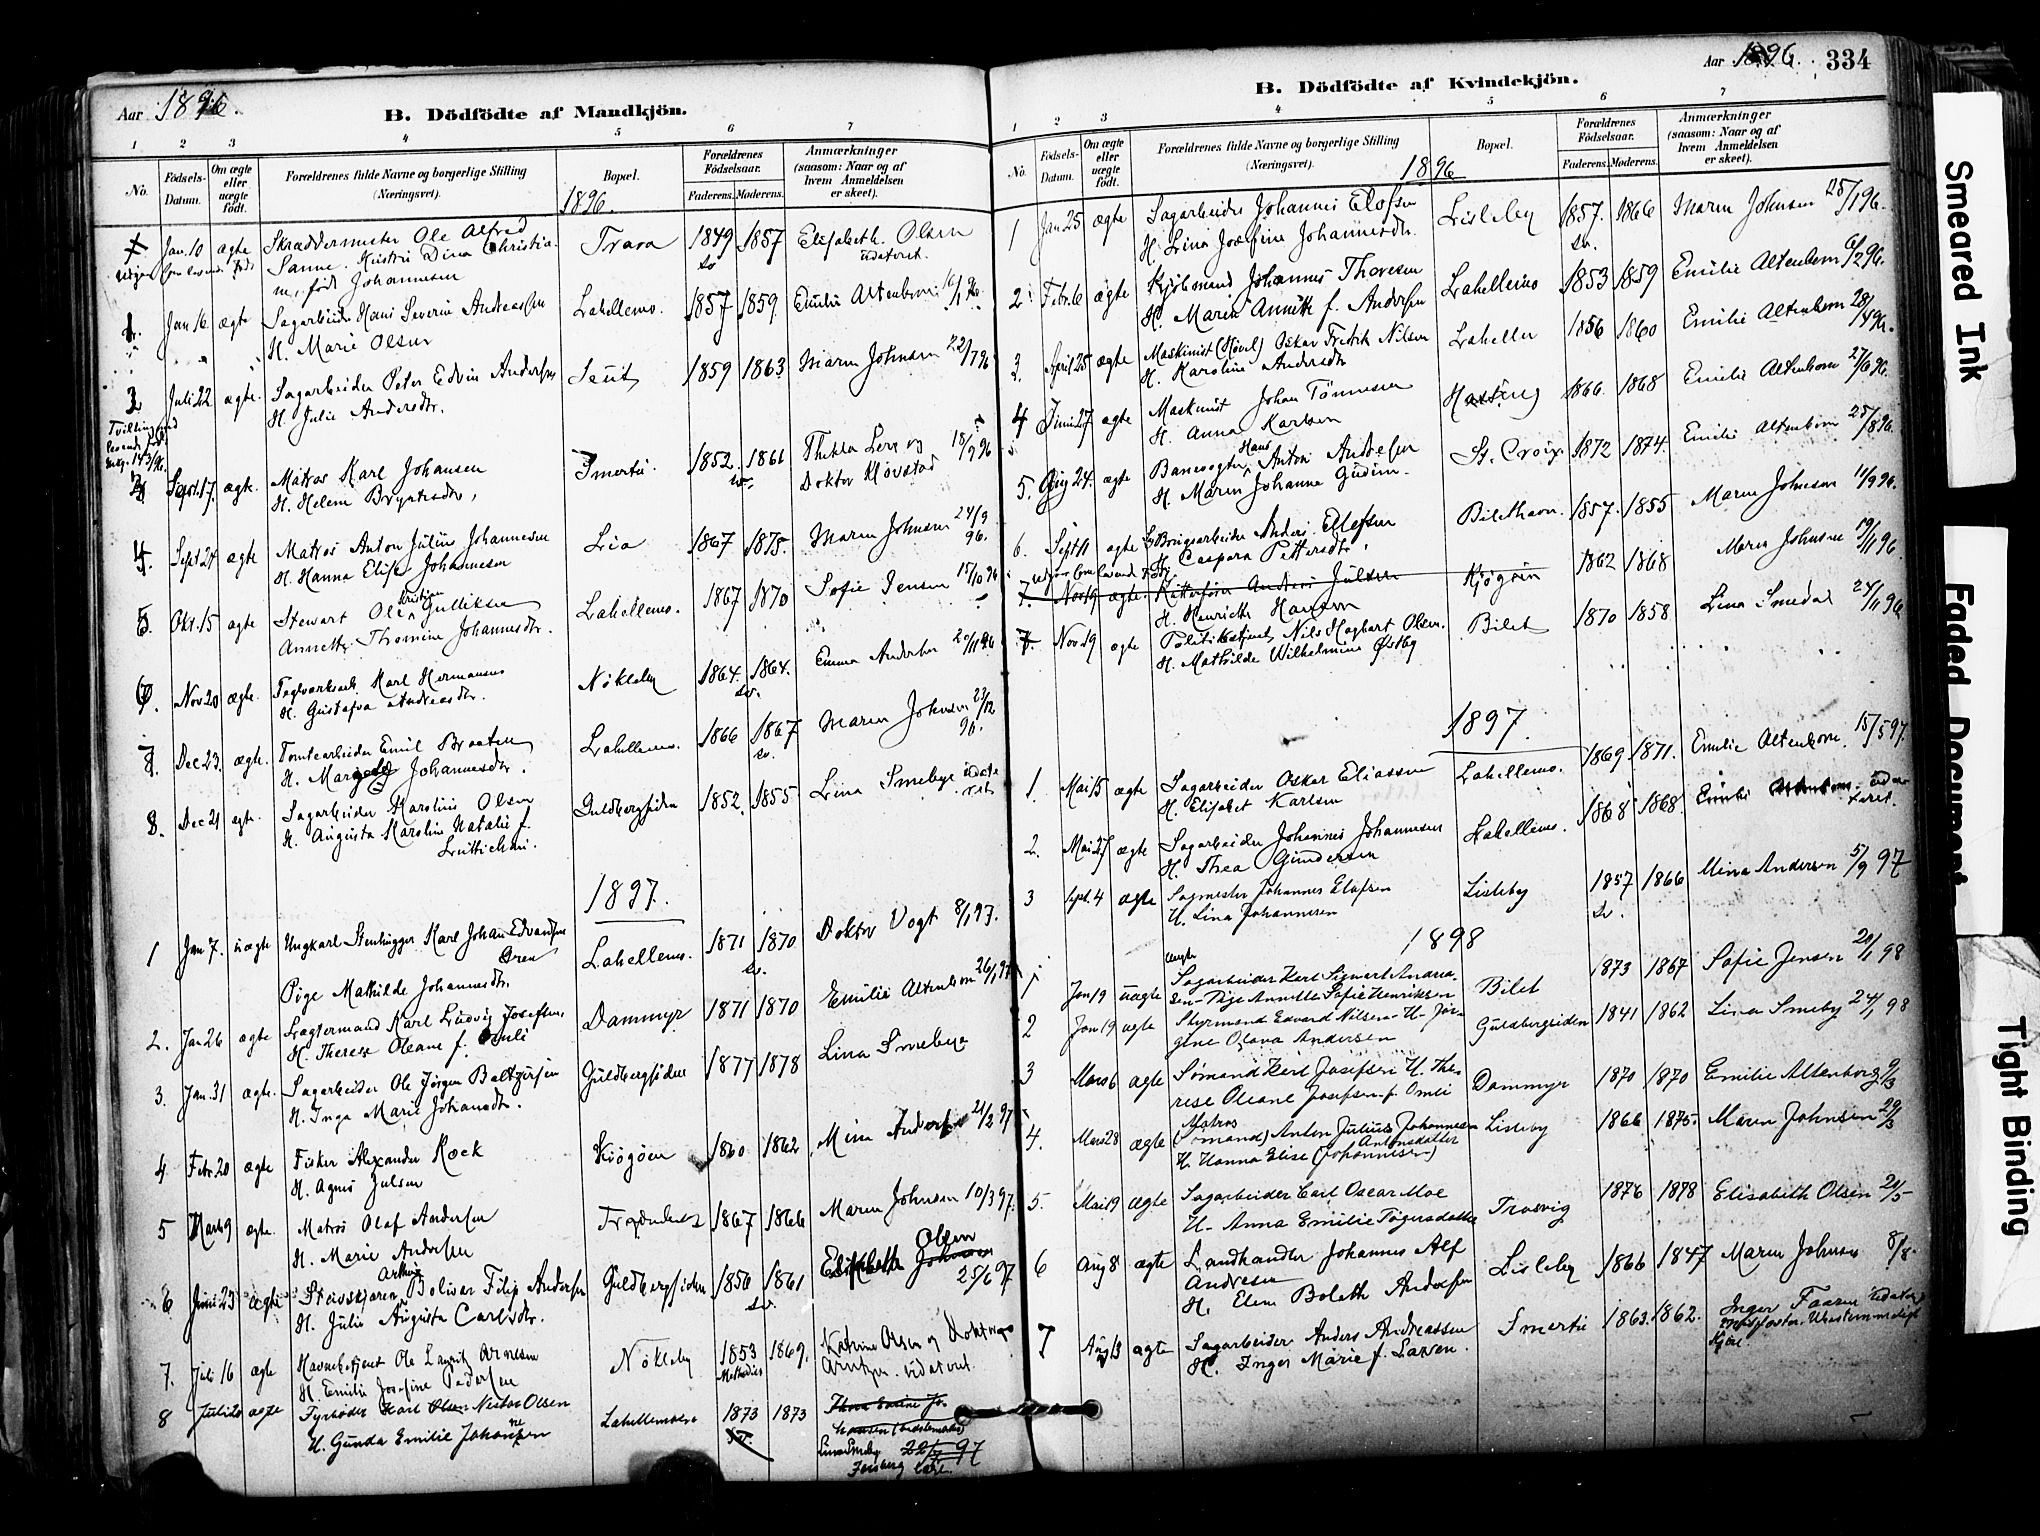 Aar 1896.
B. Dödfödte af Mandkjön.
1 2 3 4 5 6 7
No. Födsels-Datum. Om ægte eller uægte födt. Forældrenes fulde Navne og borgerlige Stilling (Næringsvei). Bopæl. Forældrenes Födselsaar. Faderens. Moderens. Anmærkninger (saasom: Naar og af hvem Anmeldelsen er skeet).
1896.
Jan. 10 ægte Skræddermester Ole Alfred Trara 1849 1857 Elisabeth Olsen
Sanne. Hustru Dina Christia-
ne, född Johannesen
1. Jan 16. ægte Sagarbeider Hans Severin Andreassen Lahellemo. 1857 1859 Emilie Altenborn 16/1 96.
H. Marie Olsen
2 Juli 22 ægte. Sagarbeider Peter Edvin Andersen Seut 1859 1863 Maren Johnsen 22/7 96
H. Julie Andersdtr.
3 Sept. 17. ægte. Matros Karl Johansen Smertu. 1852. 1861 Thekla Lers og 18/9 96
H. Helene Doktor Hovstad
4. Sept 24 ægte Matros Anton Julius Johannesen Lia 1867 1875. Maren Johnsen 24/9 96.
H. Hanna Elise Johannesen
5. Okt. 15 ægte Stewart Ole Kristian Gulliksen Lahellemo. 1867 1870 Sofie Jensen 15/10 96
Annette Thomine Johannesdtr.
6. Nov 20 ægte. Karl Hermansen Nökleby 1864. 1864. Emma Andersen 20/11 96
H. Gustafva Andreasdtr.
7. Dec 23. ægte. Tomtearbeider Emil Braaten Lahellemo. 1866 1867 Maren Johnsen 23/12 96.
H. Johannesdtr.
8. Dec 21 ægte. Sagarbeider Karolius Olsen Guldbergsiden 1852. 1855. Lina Smeby
H. Augusta Karoline Natalie f.
1897.
1 Jan 7. uægte Ungkarl Stenhugger Karl Johan Edvardsen Lahellemo. 1871 1870 Doktor Vogt 8/1 97.
Pige Mathilde Johannesdtr.
2. Jan 26 ægte Lægtermand Karl Ludvig Josefsen Dammyr 1871 1870 Emilie Altenborn 26/1 97
H. Therese Oleane f. Omli
3. Jan. 31 ægte. Sagarbeider Ole Jörgen Baltzersen Guldbergsiden 1877 1878 Lina Smeby
H. Inga Marie Johansdtr.
4 Febr. 20 ægte Fisker Alexander Rock Kjøgøen 1860 1862 Mina Andersen 21/2 97
H. Agnes Julsen
5 Marts 9 ægte. Matros Olaf Andersen 1867 1866 Maren Johnsen 10/3 97.
H. Marie Andersen
6 Juni 23 ægte Arthur Bolivar Filip Andersen Guldbergsiden 1856 1861 Elisabeth Olsen 25/6 97
H. Julie Augusta Carlsdtr.
7. Juli 16 ægte Havnebetjent Ole Lauritz Arnesen Nökleby 1853 1869. Katrine Olsen og Doktor
H. Emilie Josefine Pedersen Arntzen
8 Juli 20 ægte Fyrböder Karl Nestor Olsen Lahellemoen 1873 1873
H. Gunda Emilie Johannesen Lina Smeby 22/7 97

Aar 1896. 334
B. Dödfödte af Kvindekjön.
1 2 3 4 5 6 7
No. Födsels-Datum. Om ægte eller uægte födt. Forældrenes fulde Navne og borgerlige Stilling (Næringsvei). Bopæl. Forældrenes Födselsaar. Faderens. Moderens. Anmærkninger (saasom: Naar og af hvem Anmeldelsen er skeet).
1896
1 Jan 25 ægte Sagarbeider Johannes Elofsen Lisleby 1857. 1866 Maren Johnsen 25/1 96.
H. Lina Josefine Johannesdtr.
2 Febr. 6 ægte Johannes Thoresen Lahellemo 1853 1859 Emilie Altenborn 6/2 96.
H. Maren Annette f. Andersen
3. April 25 ægte Maskinist (Hövl) Oskar Fredrik Nilsen Lahellen 1856 1860 Emilie Altenborn 28/4 96.
H. Karoline Andersdtr
4 Juni 27 ægte Maskinist Johan Tönnesen 1866. 1868 Emilie Altenborn 27/6 96.
H. Anna Karlsen
5. Aug 24. ægte Banevogter Hans Anton Andersen St. Croix 1872 1874. Emilie Altenborn 25/8 96.
H. Maren Johanne Gudim.
6. Sept 11 ægte Anders Ellefsen Bilethavn. 1857. 1855 Maren Johnsen 11/9 96.
H. Caspara Pettersdtr.
7. Nov 19 ægte Anders Julsen Kjøgøen 1862 1868 Maren Johnsen 19/11 96
H. Henriette Hansen
7 Nov 19 ægte Politibetjent Nils Hagbart Olsen. Bilet 1870 1858 Lina Smedal 24/11 96
H. Mathilde Wilhelmine Østby
1897.
1. Mai 15 ægte Sagarbeider Oskar Eliassen Lahellemo. 1869 1871. Emilie Altenborn. 15/5 97.
H. Elisabet Karlsen
2. Mai 27 ægte Sagarbeider Johannes Johannesen Lahellemo. 1868 1868. Emilie Altenborn.
H. Thea Gundersen
3 Sept. 4 ægte Sagmester Johannes Elofsen Lisleby 1857 1866 Mina Andersen 5/9 97
H. Lina Johannesen
1898
1 Jan 9 uægte Ungk. Sagarbeider Karl Sigwart Andrea- Bilet 1873 1867 Sofie Jensen 20/1 98
sen - Pige Annette Sofie Henriksen
2 Jan 19 ægte Styrmand Edvard Nilsen - H. Jör- Guldbergsiden 1841 1862 Lina Smeby 24/1 98
gine Olava Andersen
3 Mars 6 ægte Sömand Karl Josefsen H. The- Dammyr 1870 1870 Emilie Altenborg 9/3
rese Oleane Josefsen f. Omli
4. Mars 28 ægte Matros (Sömand) Anton Julius Johannesen Lisleby 1866 1875. Maren Johnsen 29/3
H. Hanna Elise (Johannesen) Antonsdatter
5. Mai 19 ægte Sagarbeider Carl Oscar Moe Trosvig 1876 1878 Elisabeth Olsen 20/5
H. Anna Emilie Tögersdatter
6 Aug 8 ægte Landhandler Johannes Alf Lisleby 1866 1847 Maren Johnsen 8/8.
Andresen
H. Elen Bolette Andersen
7 Aug 13 ægte Sagarbeider Anders Andreassen Smertu 1863. 1862. Inger Faaren
H. Inger Marie f. Larsen.
Smeared Ink
Faded Document
Tight Binding